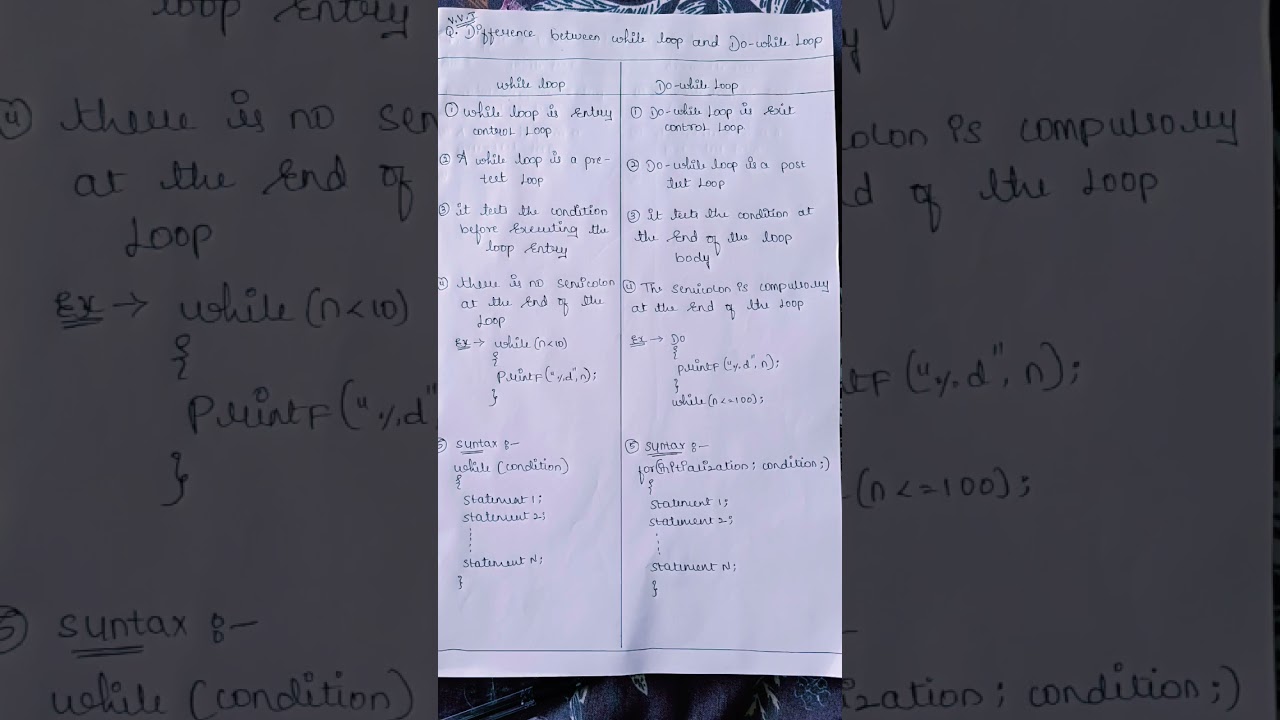 V.V.I
Q. Difference between while loop and Do-while Loop
while loop
① while loop is Entry
control Loop
② A while loop is a pre-
test Loop
③ it tests the condition
before Executing the
loop Entry
④ there is no semicolon
at the End of the
Loop
Ex → while (n<10)
{
printf ("%d", n);
}
⑤ Syntax :-
while (condition)
{
Statement 1;
Statement 2;
Statement N;
}
Do-while Loop
① Do-while Loop is Exit
control Loop
② Do-while loop is a post
test Loop
③ it tests the condition at
the End of the loop
body
④ The semicolon is compulsory
at the End of the Loop
Ex → Do
{
printf ("%d", n);
}
while (n<=100);
⑤ Syntax :-
for(initialization; condition;)
{
Statement 1;
Statement 2;
Statement N;
}
loop Entry
④ there is no sem
at the End of
Loop
Ex → while (n<10)
{
printf ("%d"
}
⑤ Syntax :-
while (condition)
colon is compulsory
d of the Loop
tf ("%d", n);
(n<=100);
ization; condition;)